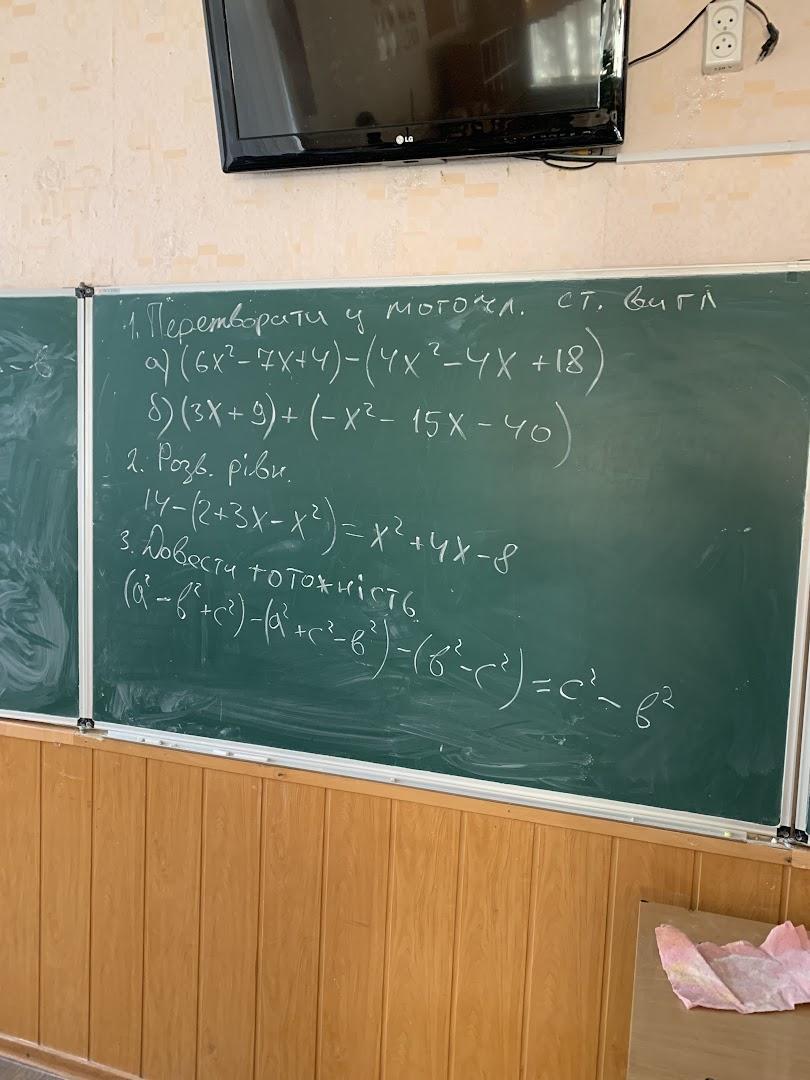 LG
1. Перетворити у многочл. ст. вигл
а) (6x² - 7x + 4) - (4x² - 4x + 18)
б) (3x + 9) + (-x² - 15x - 40)
2. Розв. рівн.
14 - (2 + 3x - x²) = x² + 4x - 8
3. Довести тотожність
(a² - в² + c²) - (a² + c² - в²) - (в² - c²) = c² - в²